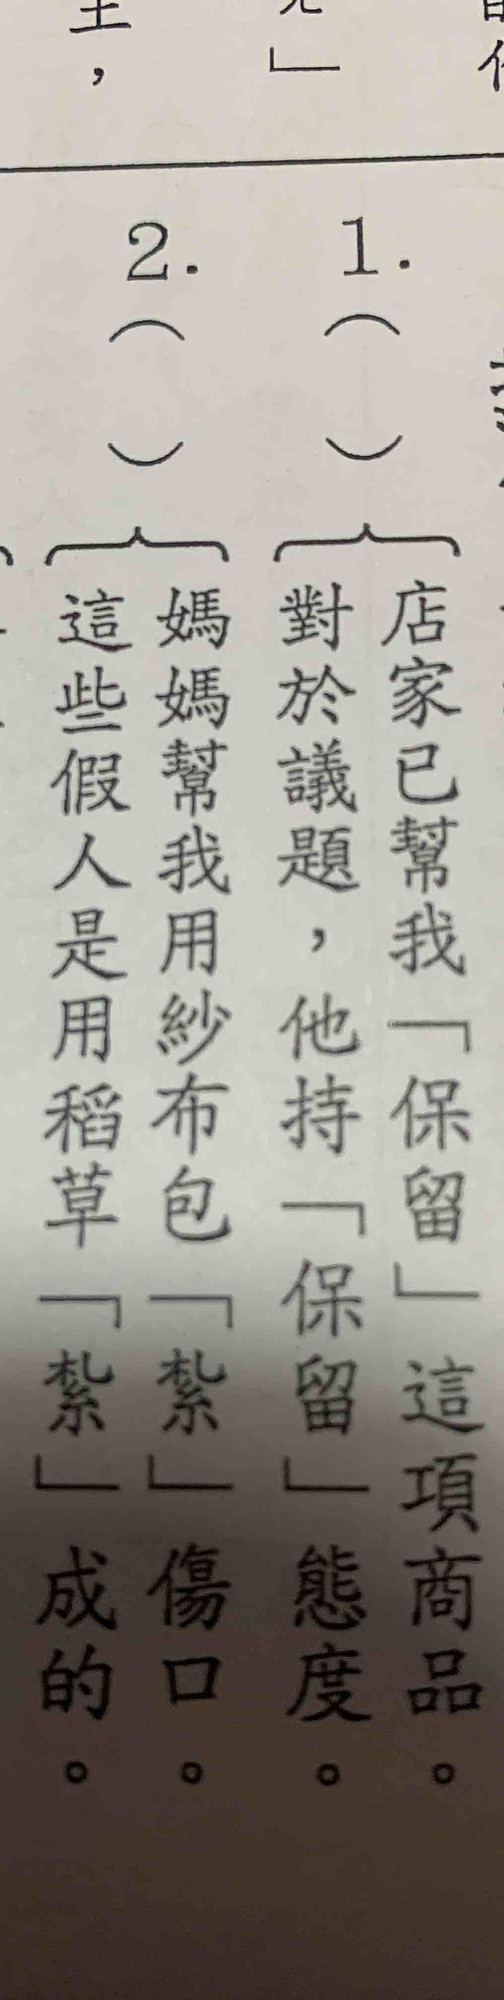 1.（　）
店家已幫我「保留」這項商品。
對於議題，他持「保留」態度。
2.（　）
媽媽幫我用紗布包「紮」傷口。
這些假人是用稻草「紮」成的。